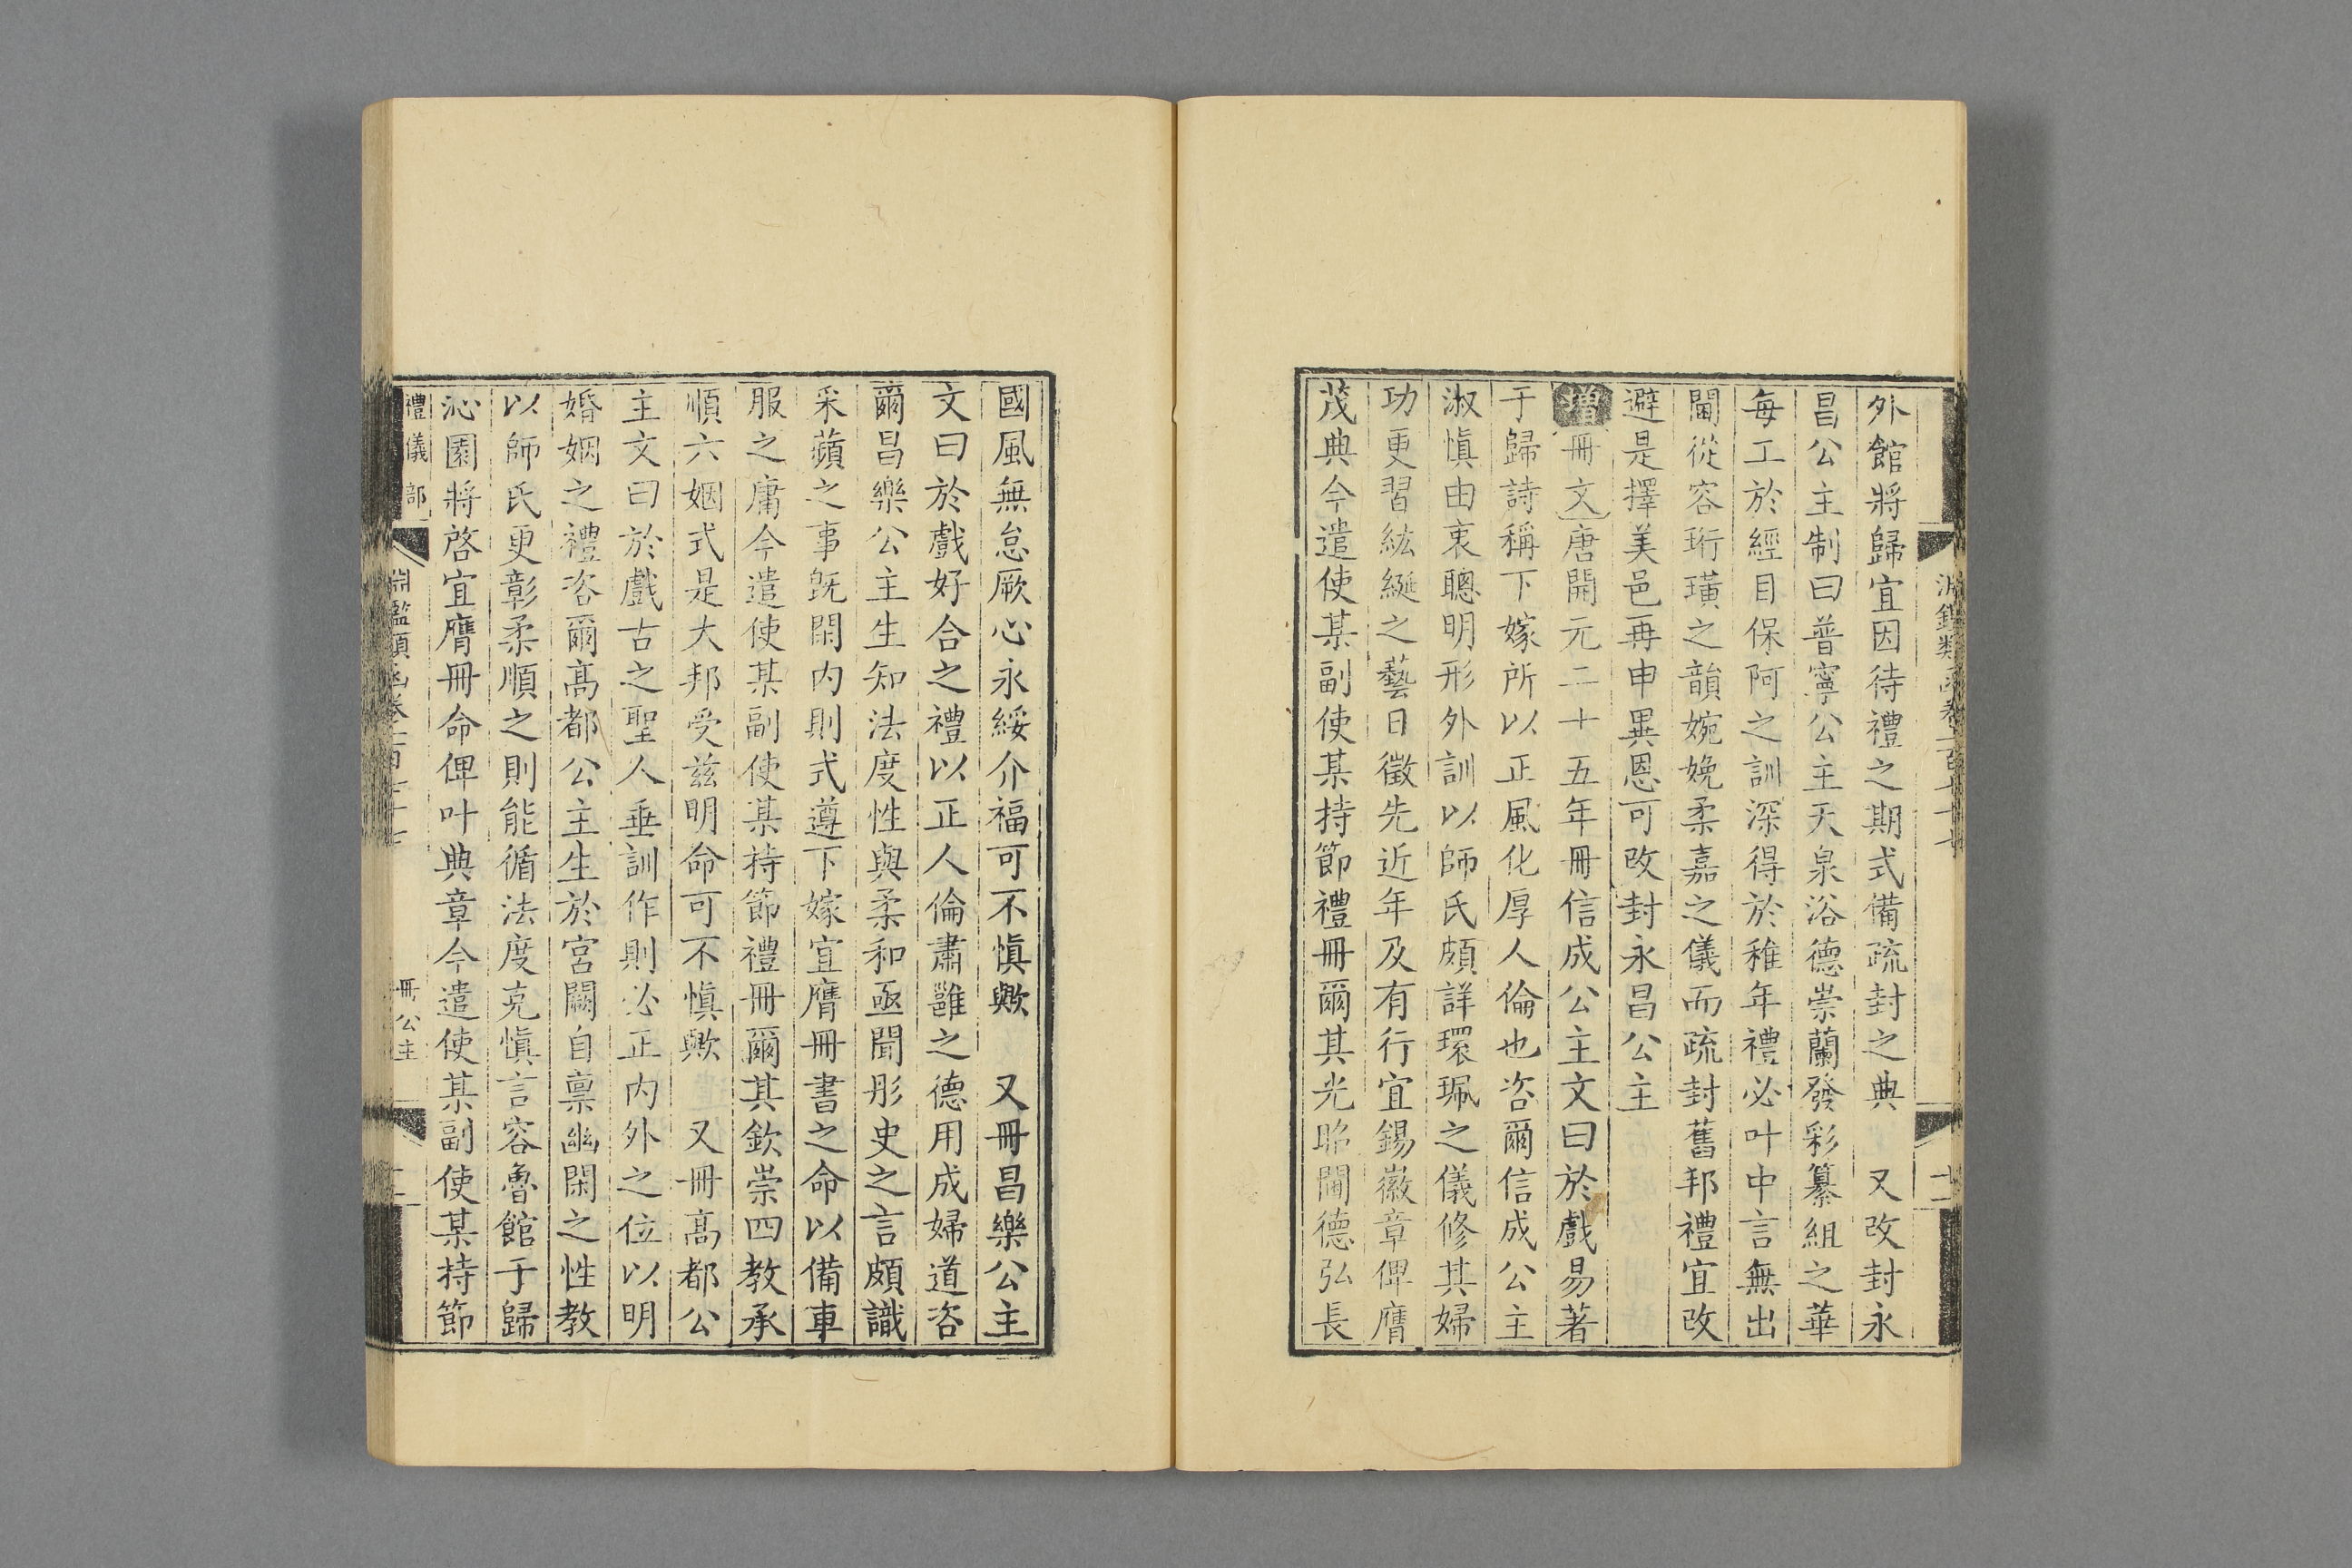 外館將歸宜因待禮之期式備疏封之典　又改封永
昌公主制曰普寧公主天泉浴德崇蘭發彩纂組之華
每工於經目保阿之訓深得於稚年禮必叶中言無出
閫從容珩璜之韻婉娩柔嘉之儀而疏封舊邦禮宜改
避是擇美邑再申異恩可改封永昌公主
增冊文唐開元二十五年冊信成公主文曰於戲易著
于歸詩稱下嫁所以正風化厚人倫也咨爾信成公主
淑慎由衷聰明形外訓以師氏頗詳環珮之儀修其婦
功更習紘綖之藝日徵先近年及有行宜錫徽章俾膺
茂典今遣使某副使某持節禮冊爾其光昭閫德弘長
國風無怠厥心永綏介福可不慎歟　又冊昌樂公主
文曰於戲好合之禮以正人倫肅雝之德用成婦道咨
爾昌樂公主生知法度性與柔和亟聞彤史之言頗識
采蘋之事旣閑內則式遵下嫁宜膺冊書之命以備車
服之庸今遣使某副使某持節禮冊爾其欽崇四教承
順六姻式是大邦受茲明命可不慎歟　又冊高都公
主文曰於戲古之聖人垂訓作則必正內外之位以明
婚姻之禮咨爾高都公主生於宮闕自稟幽閑之性教
以師氏更彰柔順之則能循法度克慎言容魯館于歸
沁園將啓宜膺冊命俾叶典章今遣使某副使某持節
禮儀部
淵鑑類函卷一百七十七
冊公主
十一